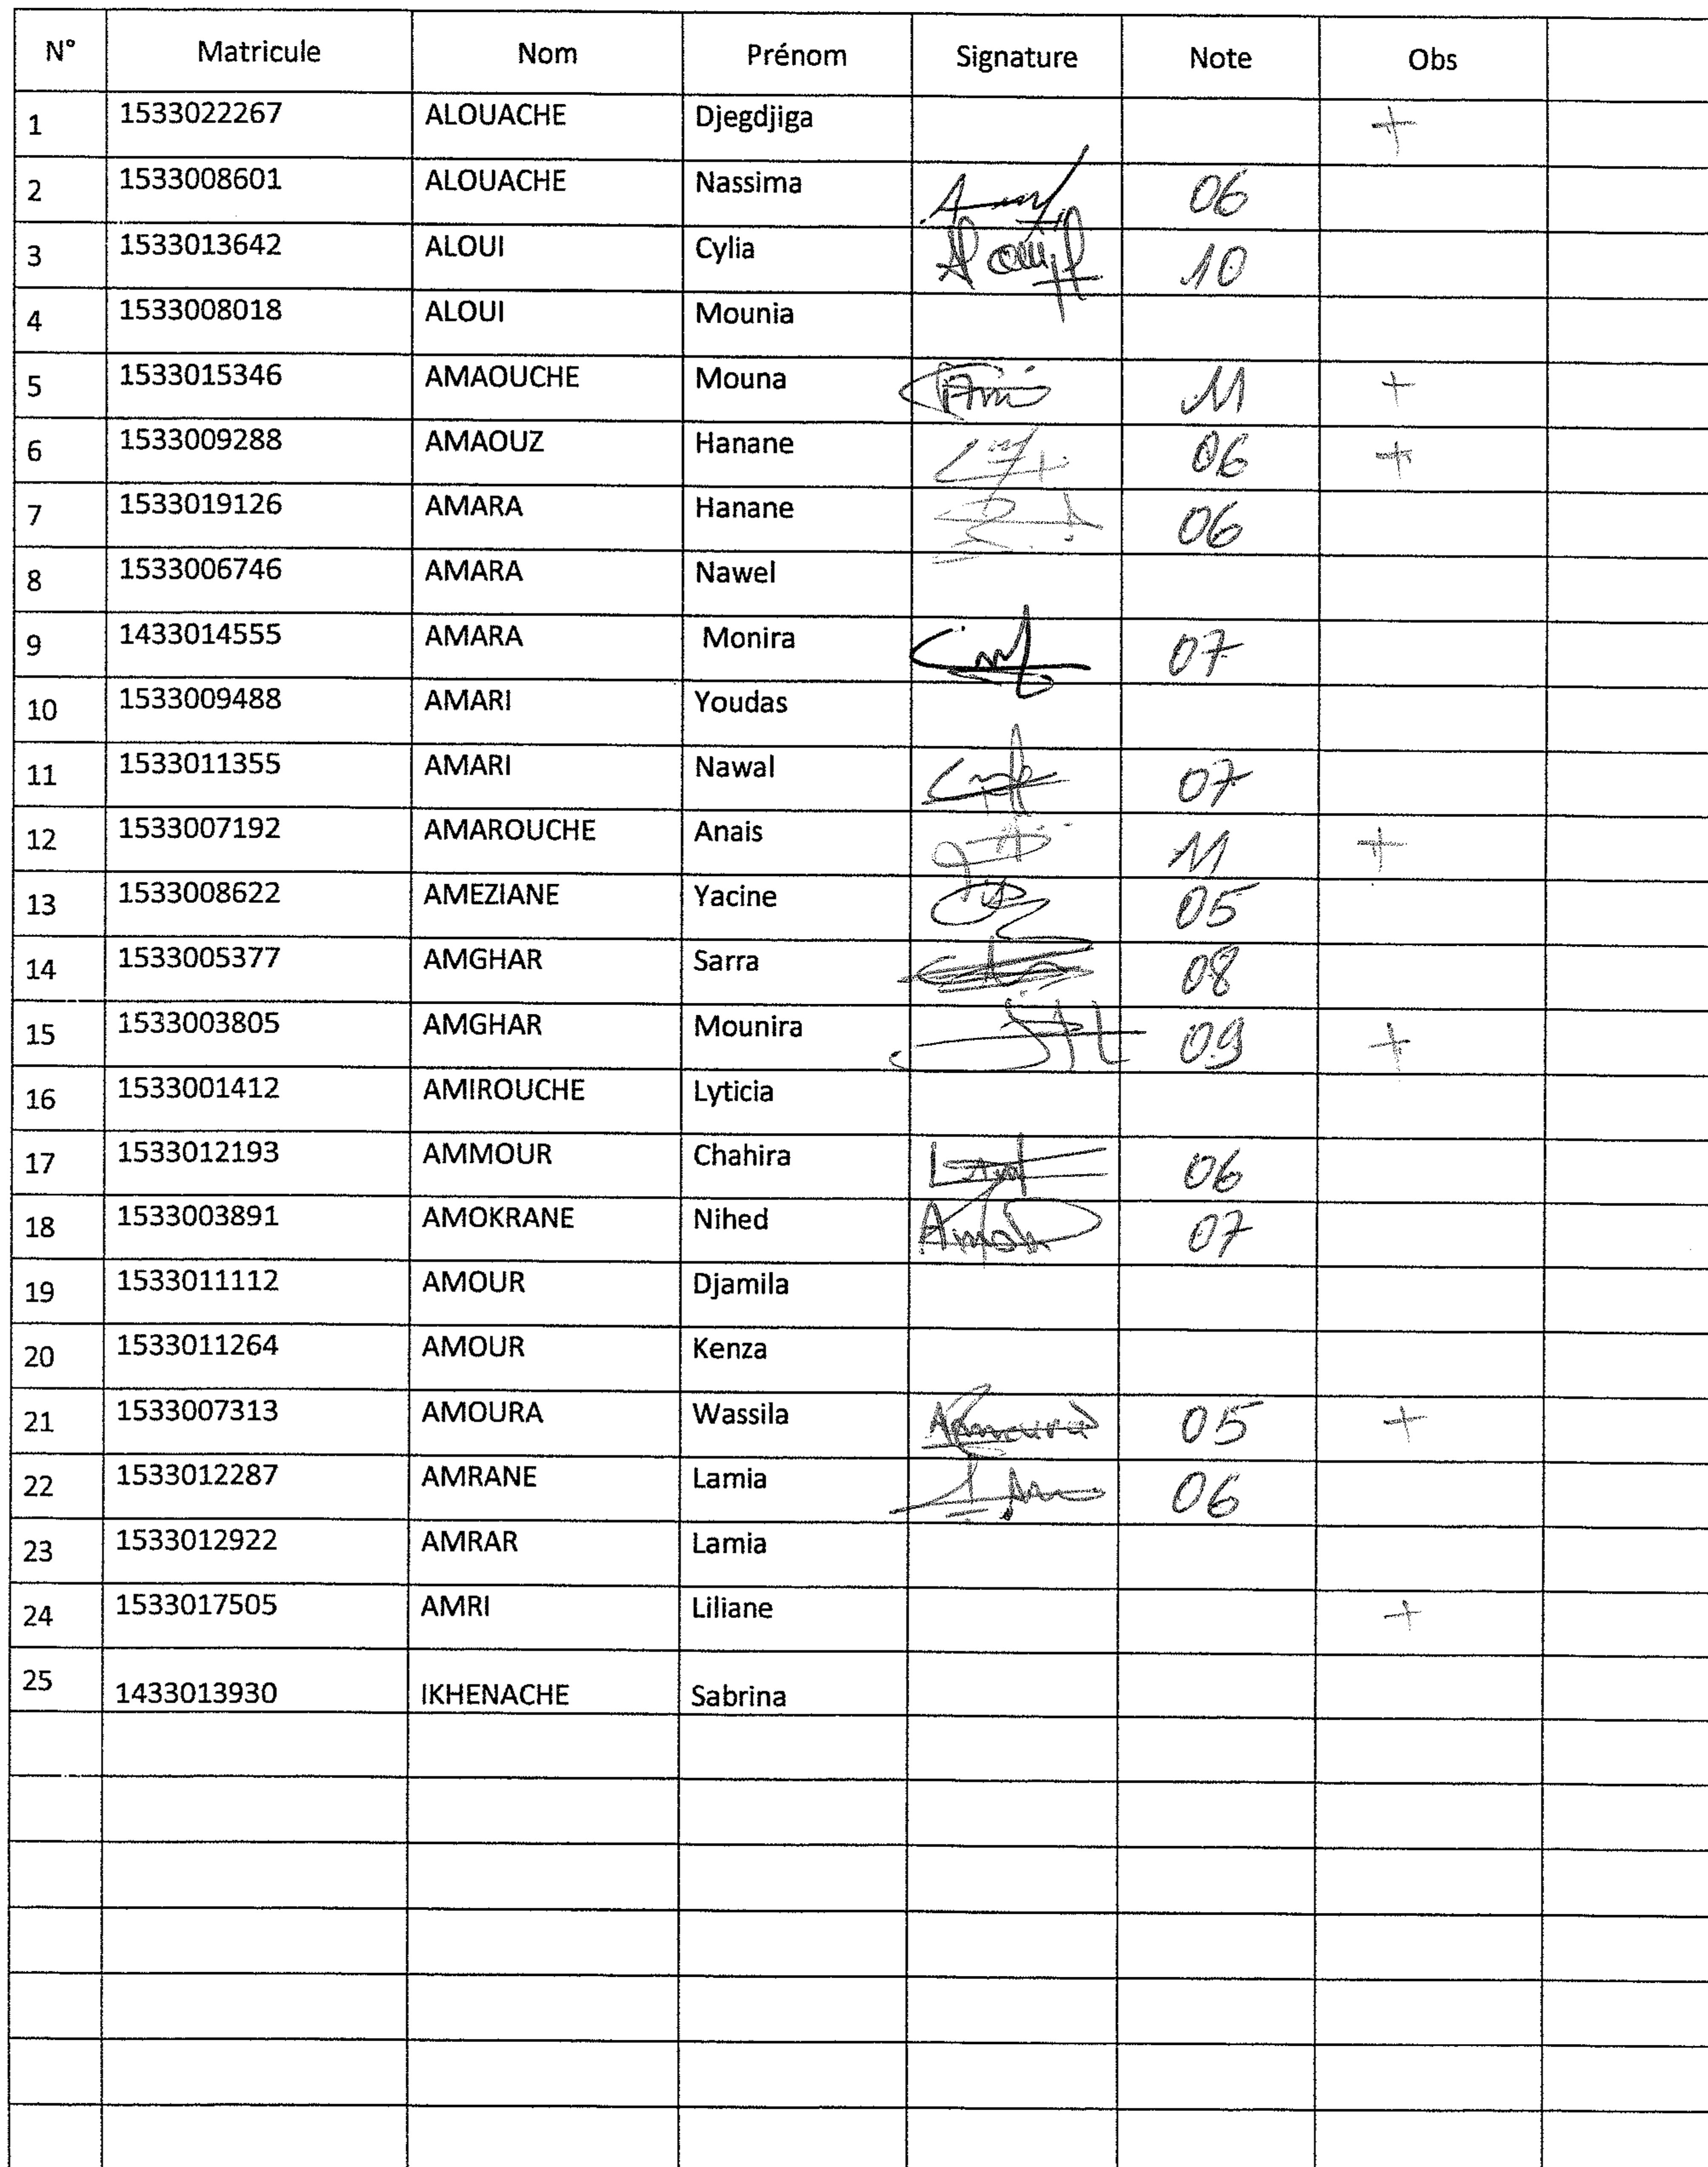 N° Matricule Nom Prénom Signature Note Obs
1 1533022267 ALOUACHE Djegdjiga +
2 1533008601 ALOUACHE Nassima 06
3 1533013642 ALOUI Cylia 10
4 1533008018 ALOUI Mounia
5 1533015346 AMAOUCHE Mouna 11 +
6 1533009288 AMAOUZ Hanane 06 +
7 1533019126 AMARA Hanane 06
8 1533006746 AMARA Nawel
9 1433014555 AMARA Monira 07
10 1533009488 AMARI Youdas
11 1533011355 AMARI Nawal 07
12 1533007192 AMAROUCHE Anais 11 +
13 1533008622 AMEZIANE Yacine 05
14 1533005377 AMGHAR Sarra 08
15 1533003805 AMGHAR Mounira 09 +
16 1533001412 AMIROUCHE Lyticia
17 1533012193 AMMOUR Chahira 06
18 1533003891 AMOKRANE Nihed 07
19 1533011112 AMOUR Djamila
20 1533011264 AMOUR Kenza
21 1533007313 AMOURA Wassila 05 +
22 1533012287 AMRANE Lamia 06
23 1533012922 AMRAR Lamia
24 1533017505 AMRI Liliane +
25 1433013930 IKHENACHE Sabrina